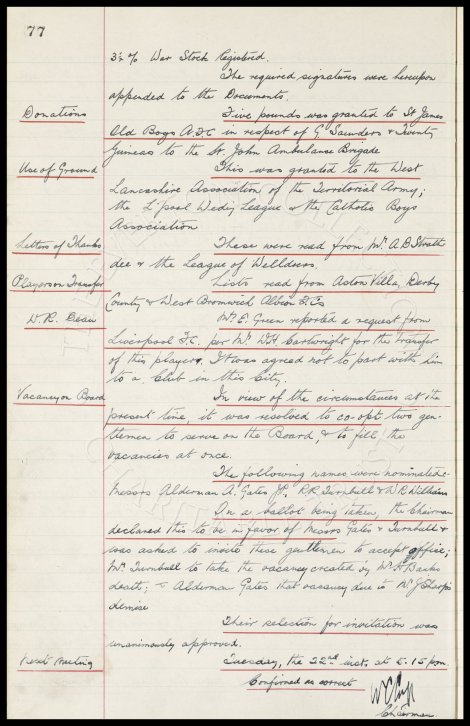 77
3½ % War Stock Registered.
The required signatures were hereupon
appended to the Documents.
Donations
Five pounds was granted to St James
Old Boys A.F.C in respect of G. Saunders & Twenty
Guineas to the St. John Ambulance Brigade
Use of Ground
This was granted to the West
Lancashire Association of the Territorial Army;
the L'pool Wed'y League & the Catholic Boys
Association
Letters of Thanks
These were read from Mr. A.B. Strath
dee & the League of Welldoers.
Players on Transfer
Lists read from Aston Villa, Derby
County & West Bromwich Albion F.Cs
W.R. Dean
Mr. E. Green reported a request from
Liverpool F.C. per Mr. W.H. Cartwright for the transfer
of this player. It was agreed not to part with him
to a Club in this City.
Vacancy on Board
In view of the circumstances at the
present time, it was resolved to co-opt two gen-
tlemen to serve on the Board, & to fill the
vacancies at once.
The following names were nominated:-
Messrs Alderman A. Gates J.P. R.R. Turnbull & W.R. Williams
In a ballot being taken, the Chairman
declared this to be in favor of Messrs Gates & Turnbull &
was asked to invite these gentlemen to accept office;
Mr. Turnbull to take the vacancy created by Mr. H. Banks
death; & Alderman Gates that vacancy due to Mr. J Sharp's
demise
Their selection for invitation was
unanimously approved.
Next Meeting
Tuesday, the 22nd inst. at 5.15 pm.
Confirmed as correct
Chairman